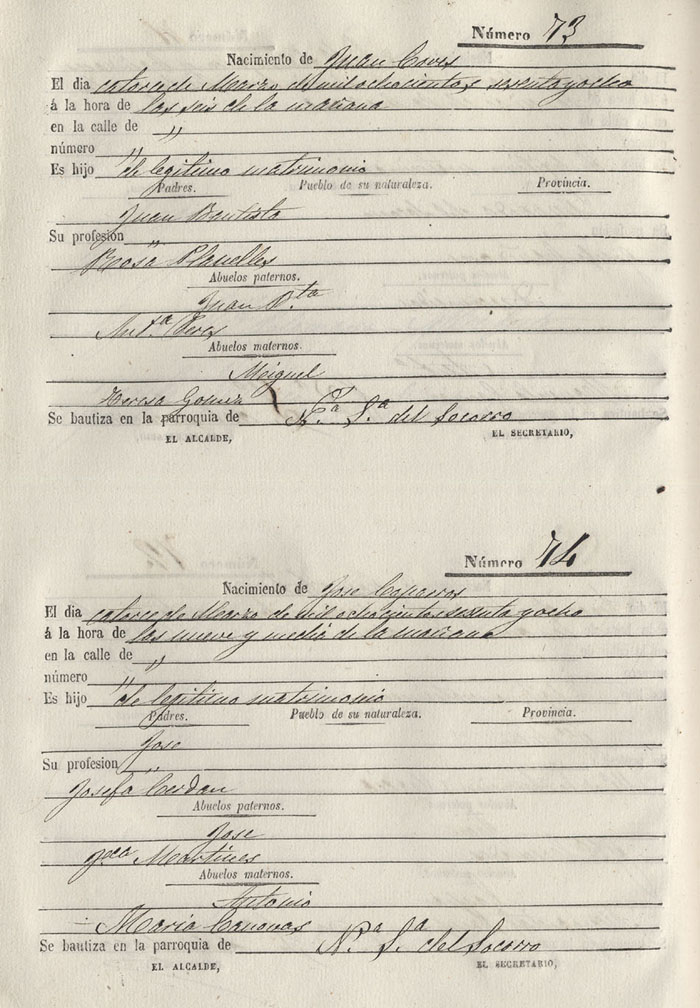 Número 73
Nacimiento de Juan Coves
El dia catorce de Marzo de mil ochocientos sesenta y ocho
á la hora de las seis de la mañana
en la calle de "
número "
Es hijo de legitimo matrimonio
Padres. Pueblo de su naturaleza. Provincia.
Juan Bautista
Su profesion "
Rosa Planelles
Abuelos paternos.
Juan B.ta
Ant.a Peres
Abuelos maternos.
Meiguel
Teresa
Se bautiza en la parroquia de N.a S.a del Socorro
EL ALCALDE, EL SECRETARIO,
Número 74
Nacimiento de Jose Caparros
El dia catorce de Marzo de mil ochocientos sesenta y ocho
á la hora de las nueve y media de la mañana
en la calle de "
número "
Es hijo de legitimo matrimonio
Padres. Pueblo de su naturaleza. Provincia.
Jose
Su profesion "
Josefa Cerdan
Abuelos paternos.
Jose
Martines
Abuelos maternos.
Antonio
Maria Canovas
Se bautiza en la parroquia de N.a S.a del Socorro
EL ALCALDE, EL SECRETARIO,